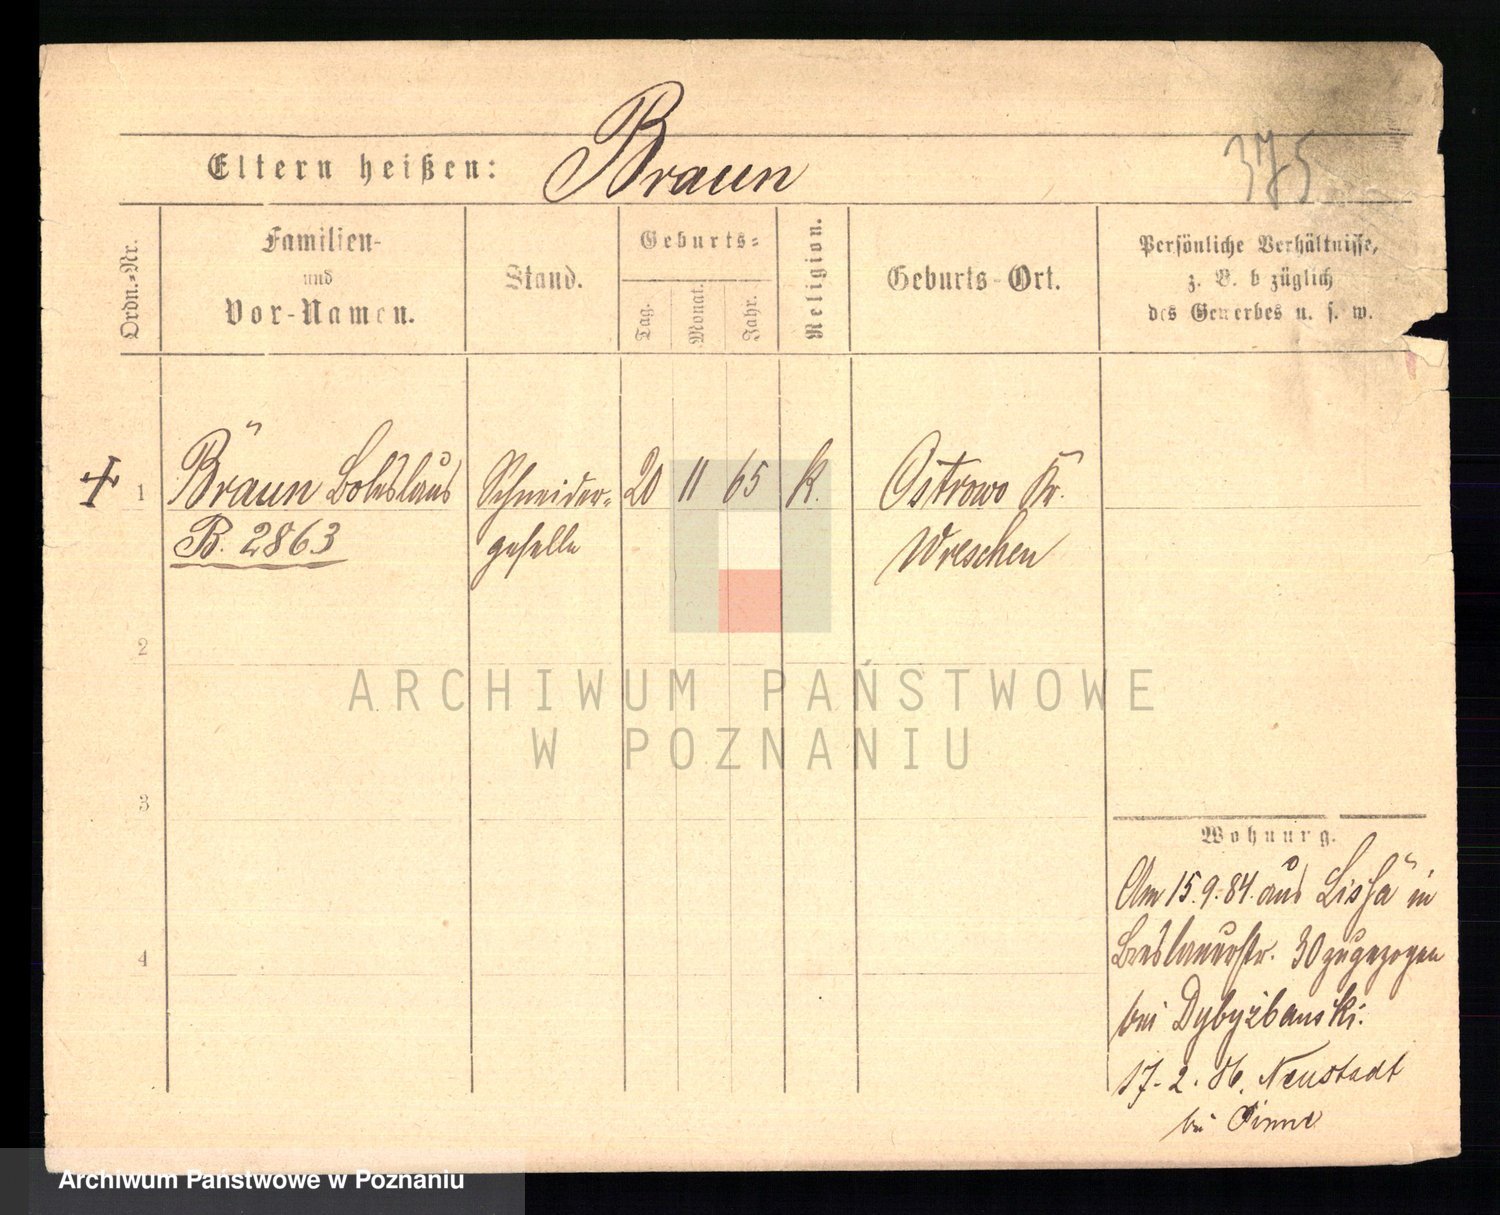 375
Eltern heißen: Braun
Ordn.-Nr.
Familien-
und
Vor-Namen.
Stand.
Geburts-
Tag.
Monat.
Jahr.
Religion.
Geburts-Ort.
Persönliche Verhältnisse,
z. B. b züglich
des Gewerbes u. s. w.
1 Bräun Boleslaus Schneider- 20 11 65 k. Ostrowo Kr.
B. 2863 geselle Wreschen
2
3
4
Wohnung.
Am 15.9.84. aus Lissa in
Breslauerstr. 30 zugezogen
bei
17.2.86. Neustadt
bei Pinne
ARCHIWUM PAŃSTWOWE
W POZNANIU
Archiwum Państwowe w Poznaniu